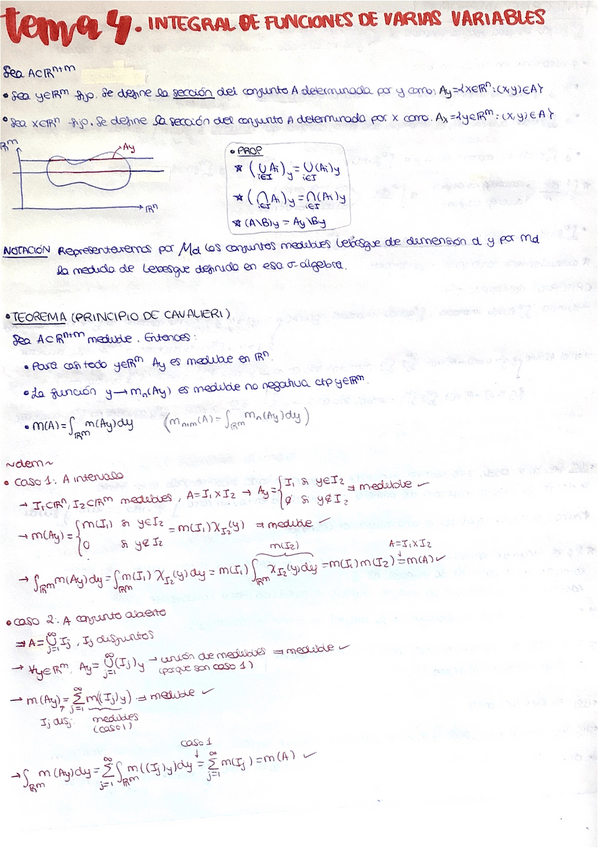 tema 4. INTEGRAL DE FUNCIONES DE VARIAS VARIABLES
Sea A⊂ℝⁿ⁺ᵐ
• Sea y∈ℝᵐ fijo. Se define la sección del conjunto A determinada por y como: Ay={x∈ℝⁿ:(x,y)∈A}
• Sea x∈ℝⁿ fijo. Se define la sección del conjunto A determinada por x como: Ax={y∈ℝᵐ:(x,y)∈A}
ℝᵐ
Ay
ℝⁿ
• PROP
* (∪ Ai)y = ∪(Ai)y
i∈I i∈I
* (∩ Ai)y = ∩(Ai)y
i∈I i∈I
* (A\B)y = Ay\By
NOTACIÓN Representaremos por Md los conjuntos medibles Lebesgue de dimensión d y por md
la medida de Lebesgue definida en esa σ-álgebra.
• TEOREMA (PRINCIPIO DE CAVALIERI)
Sea A⊂ℝⁿ⁺ᵐ medible. Entonces:
• Para casi todo y∈ℝᵐ Ay es medible en ℝⁿ.
• La función y→mn(Ay) es medible no negativa ctp y∈ℝᵐ
• m(A)=∫ℝᵐ m(Ay)dy (mn+m(A)=∫ℝᵐ mn(Ay)dy)
~dem~
• Caso 1: A intervalo
→ I₁⊂ℝⁿ, I₂⊂ℝᵐ medibles, A=I₁×I₂ → Ay={I₁ si y∈I₂ ⇒ medible ✓
∅ si y∉I₂
→ m(Ay)={m(I₁) si y∈I₂ = m(I₁)χI₂(y) ⇒ medible ✓
0 si y∉I₂
m(I₂) A=I₁×I₂
→ ∫ℝᵐ m(Ay)dy=∫ℝᵐ m(I₁)χI₂(y)dy = m(I₁)∫ℝᵐ χI₂(y)dy = m(I₁)m(I₂) = m(A) ✓
• Caso 2: A conjunto abierto
⇒ A=∪ Ij, Ij disjuntos
j=1 ∞
→ ∀y∈ℝᵐ, Ay=∪(Ij)y → unión de medibles ⇒ medible ✓
j=1 ∞ (porque son caso 1)
→ m(Ay)=Σ m((Ij)y) ⇒ medible ✓
Ij disj. medibles
(caso 1)
caso 1
→ ∫ℝᵐ m(Ay)dy=Σ∫ℝᵐ m((Ij)y)dy = Σ m(Ij) = m(A) ✓